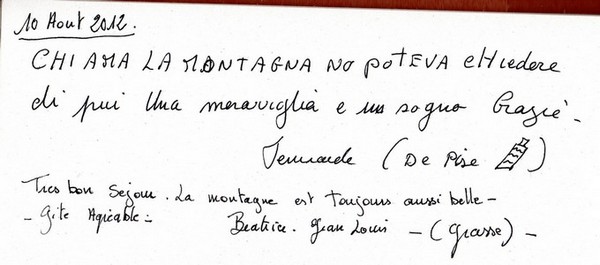 10 Aout 2012.
CHIAMA LA MONTAGNA NO POTEVA CHIedere
di pui Una meraviglia e un sogno Grazie -
(De Pise)
Tres bon Sejour. La montagne est toujours aussi belle -
- Gite Agréable - Beatrice. Jean Louis - (Grasse) -